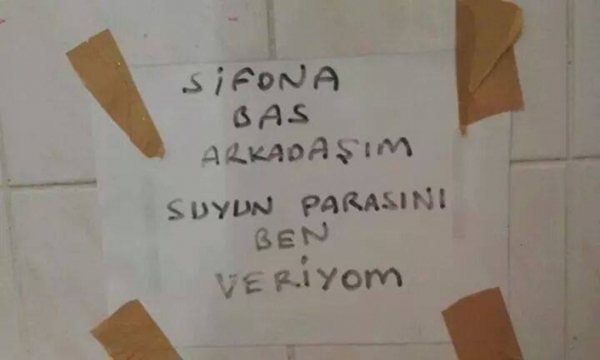 SİFONA
BAS
ARKADAŞIM
SUYUN PARASINI
BEN
VERİYOM